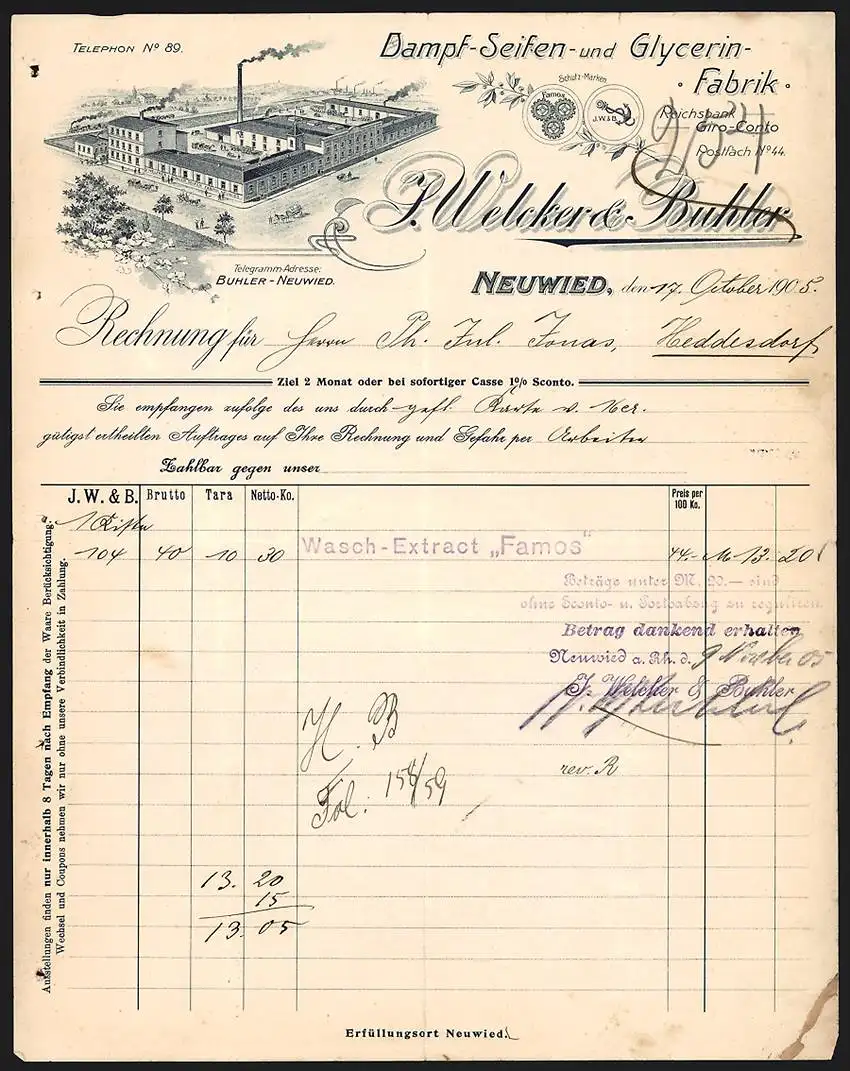 TELEPHON Nº 89.
Dampf-Seifen-und Glycerin-
Fabrik
Schutz-Marken
Famos
J.W.&B.
Reichsbank
Giro-Conto
Postfach Nº 44.
J. Welcker & Buhler
Telegramm-Adresse:
BUHLER-NEUWIED.
NEUWIED, den 17. October 1905.
Rechnung für Herrn Ph. Jul. Jonas, Heddesdorf
Ziel 2 Monat oder bei sofortiger Casse 1% Sconto.
Sie empfangen zufolge des uns durch gefl. Karte v.
gütigst ertheilten Auftrages auf Ihre Rechnung und Gefahr per Arbeiter
Zahlbar gegen unser
J. W. & B. Brutto Tara Netto-Ko. Preis per 100 Ko.
1 Kiste
104 40 10 30 Wasch-Extract „Famos" 44.- M 13.20
Beträge unter M. 20.— sind
ohne Sconto- u. Portoabzug zu reguliren.
Betrag dankend erhalten
Neuwied a. Rh. d. 9 November 05
J. Welcker & Buhler
H. B
Fol: 158/59
rev. R
13. 20
15
13. 05
Ausstellungen finden nur innerhalb 8 Tagen nach Empfang der Waare Berücksichtigung.
Wechsel und Coupons nehmen wir nur ohne unsere Verbindlichkeit in Zahlung.
Erfüllungsort Neuwied.